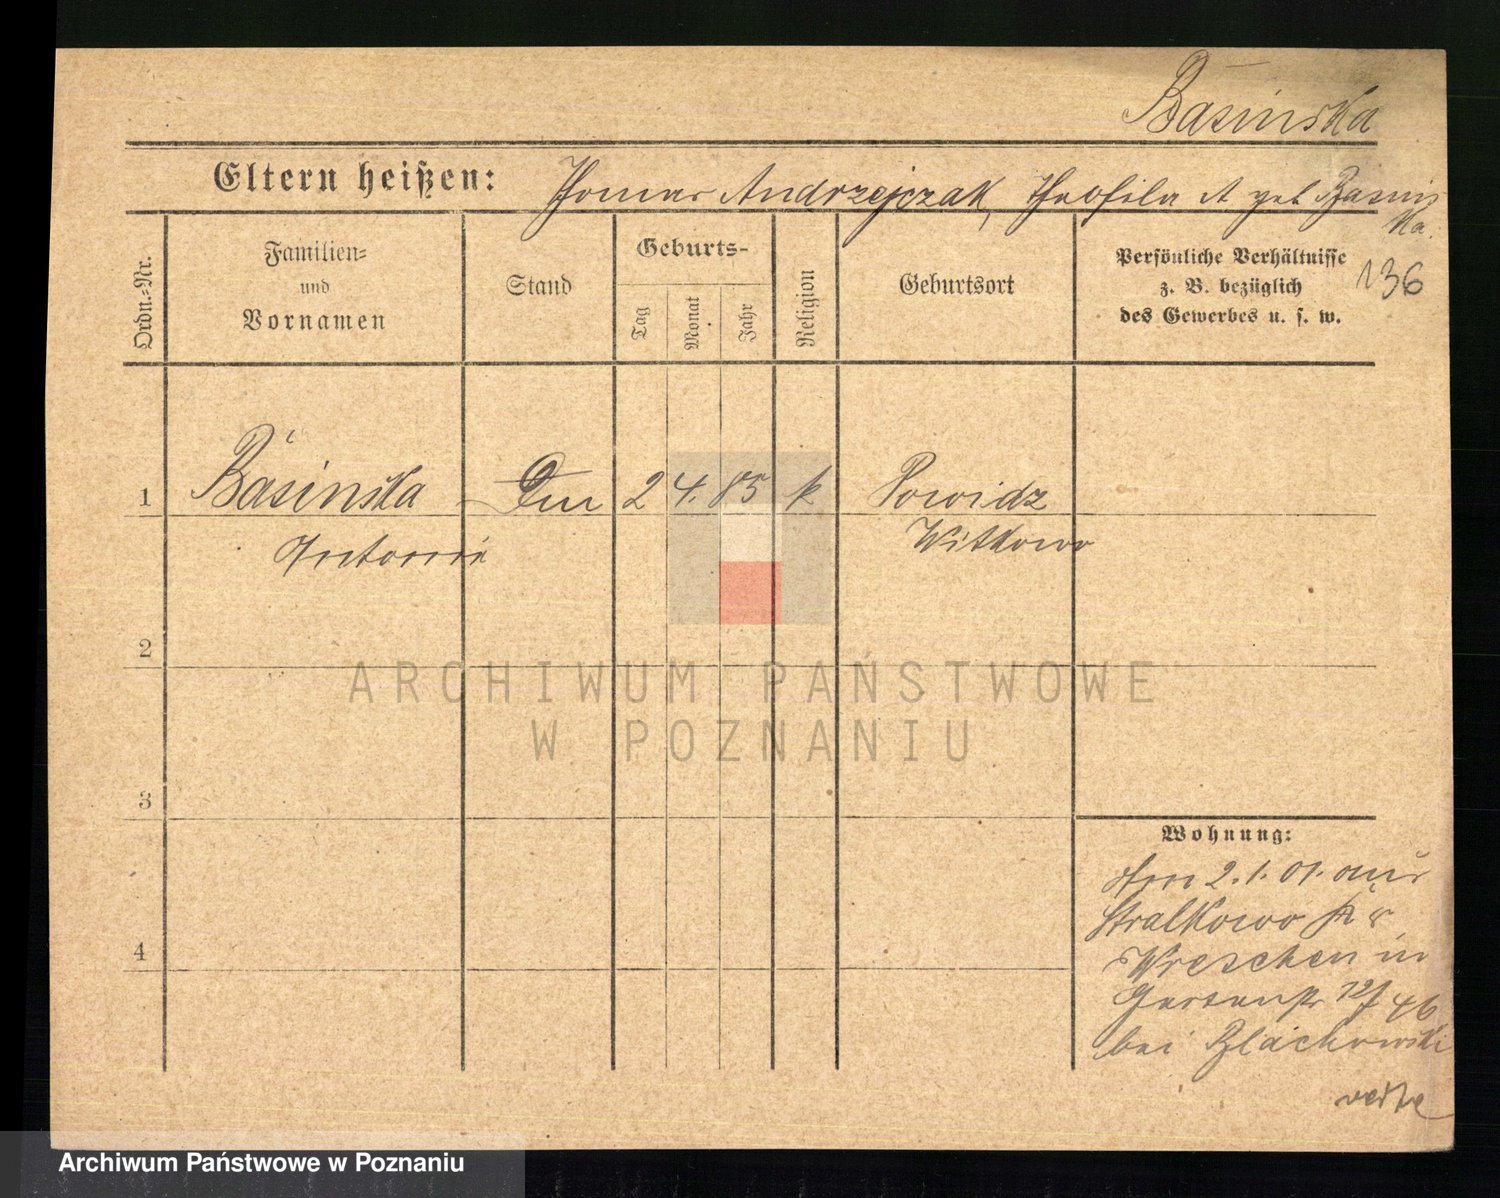 Basinska
Eltern heißen: Thomas Andrzejczak, Theofila A geb Zamis
ka.
Ordn.-Nr.
Familien-
und
Vornamen
Stand
Geburts-
Tag
Monat
Jahr
Religion
Geburtsort
Persönliche Verhältnisse
z. B. bezüglich
des Gewerbes u. s. w.
136
1 Basinska 2 4. 85 k Powidz
Antonie Witkowo
2
3
4
Wohnung:
Am 2.1.01. aus
Stralkowo Kr
Wreschen in
Gartenstr 46
bei
ARCHIWUM PAŃSTWOWE
W POZNANIU
Archiwum Państwowe w Poznaniu